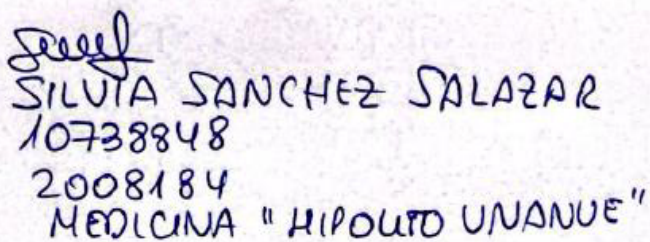 SILVIA SANCHEZ SALAZAR
10738848
2008184
MEDICINA "HIPOLITO UNANUE"